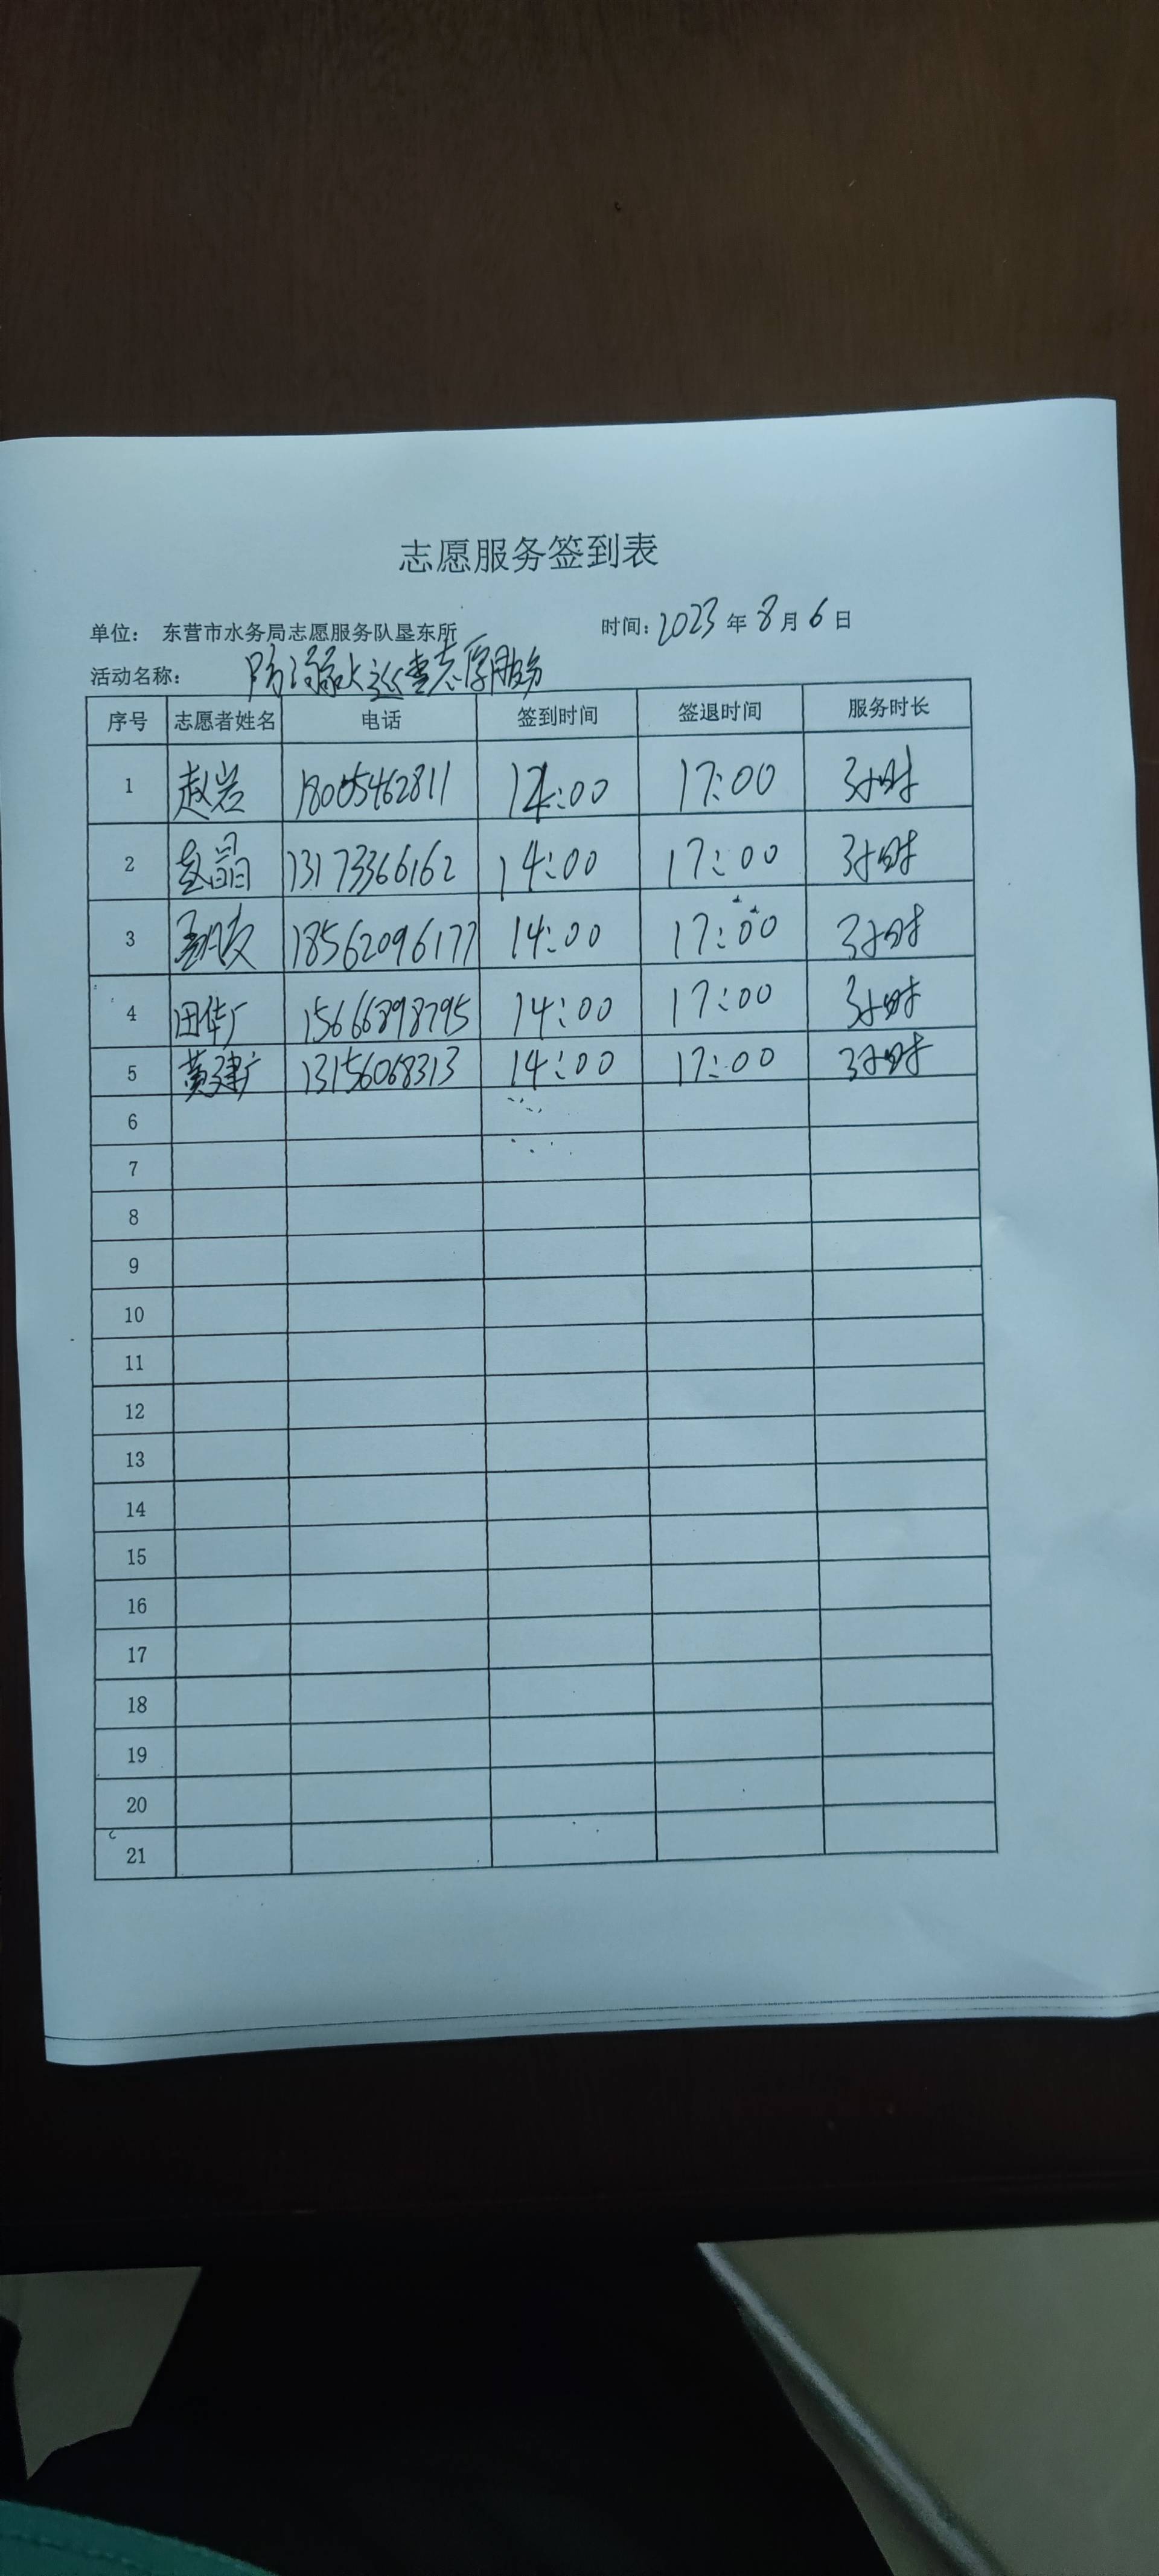 志愿服务签到表
单位： 东营市水务局志愿服务队垦东所 时间：2023年8月6日
活动名称： 防溺水巡查志愿服务
序号 志愿者姓名 电话 签到时间 签退时间 服务时长
1 赵岩 18005462811 14:00 17:00 3小时
2 赵晶 13173366162 14:00 17:00 3小时
3 18562096177 14:00 17:00 3小时
4 田华广 15666898795 14:00 17:00 3小时
5 黄建广 13156068313 14:00 17:00 3小时
6
7
8
9
10
11
12
13
14
15
16
17
18
19
20
21